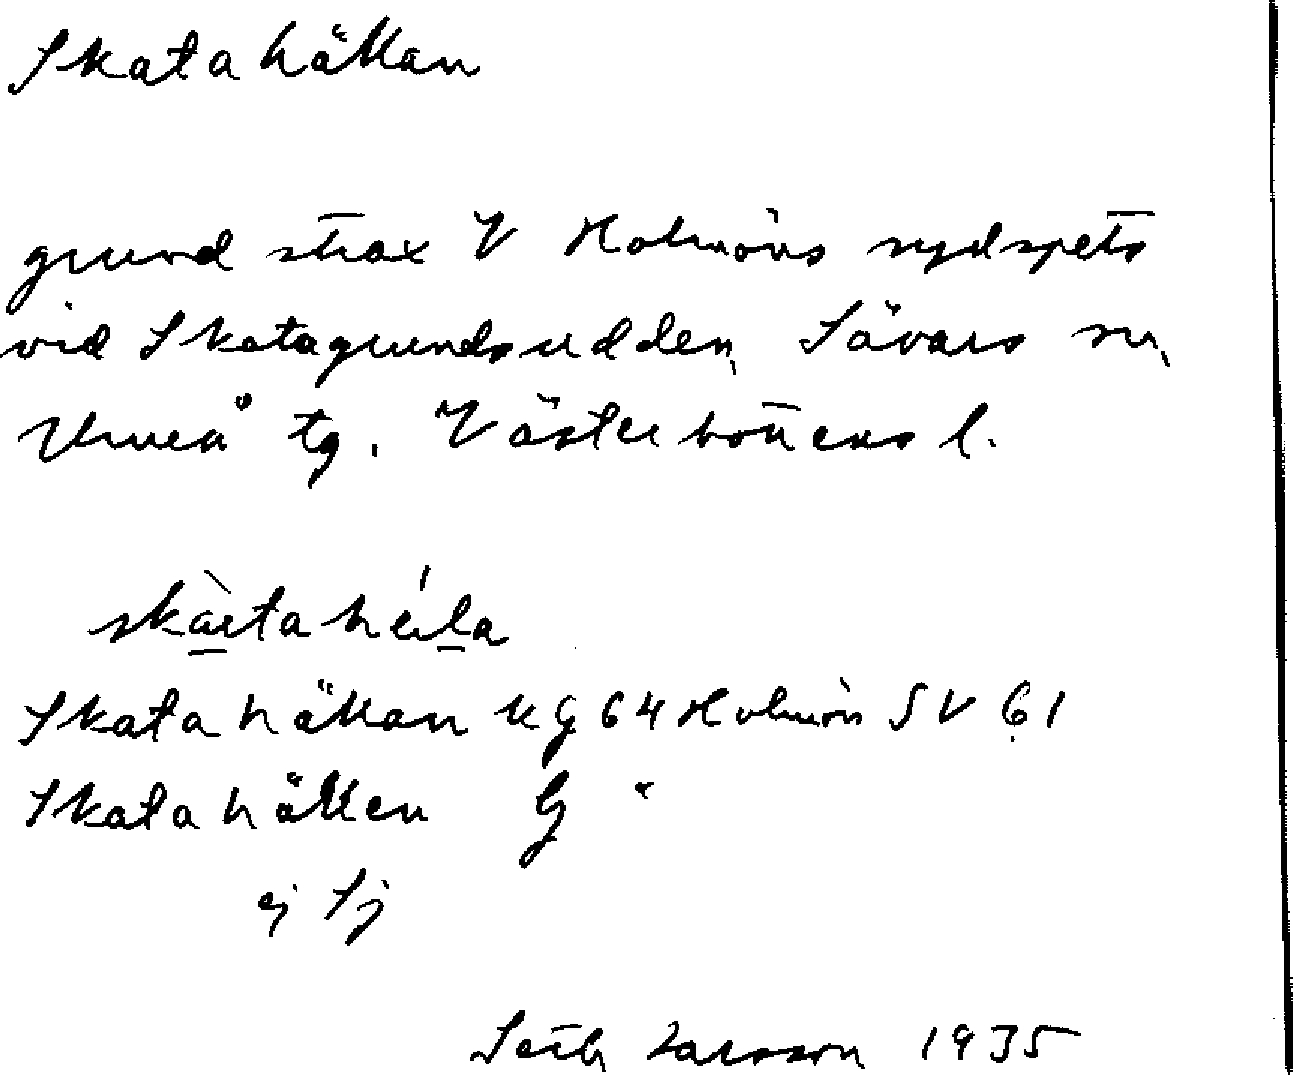 Skatahällan
grund strax V Holmöns sydspets
vid Skatagrundsudden, Sävars sn,
Umeå tg. Västerbottens l.
skàtahéla
Skatahällan KG 64 Holmön SV 61
Skatahällen G "
ej Sj
Seth Larsson 1935